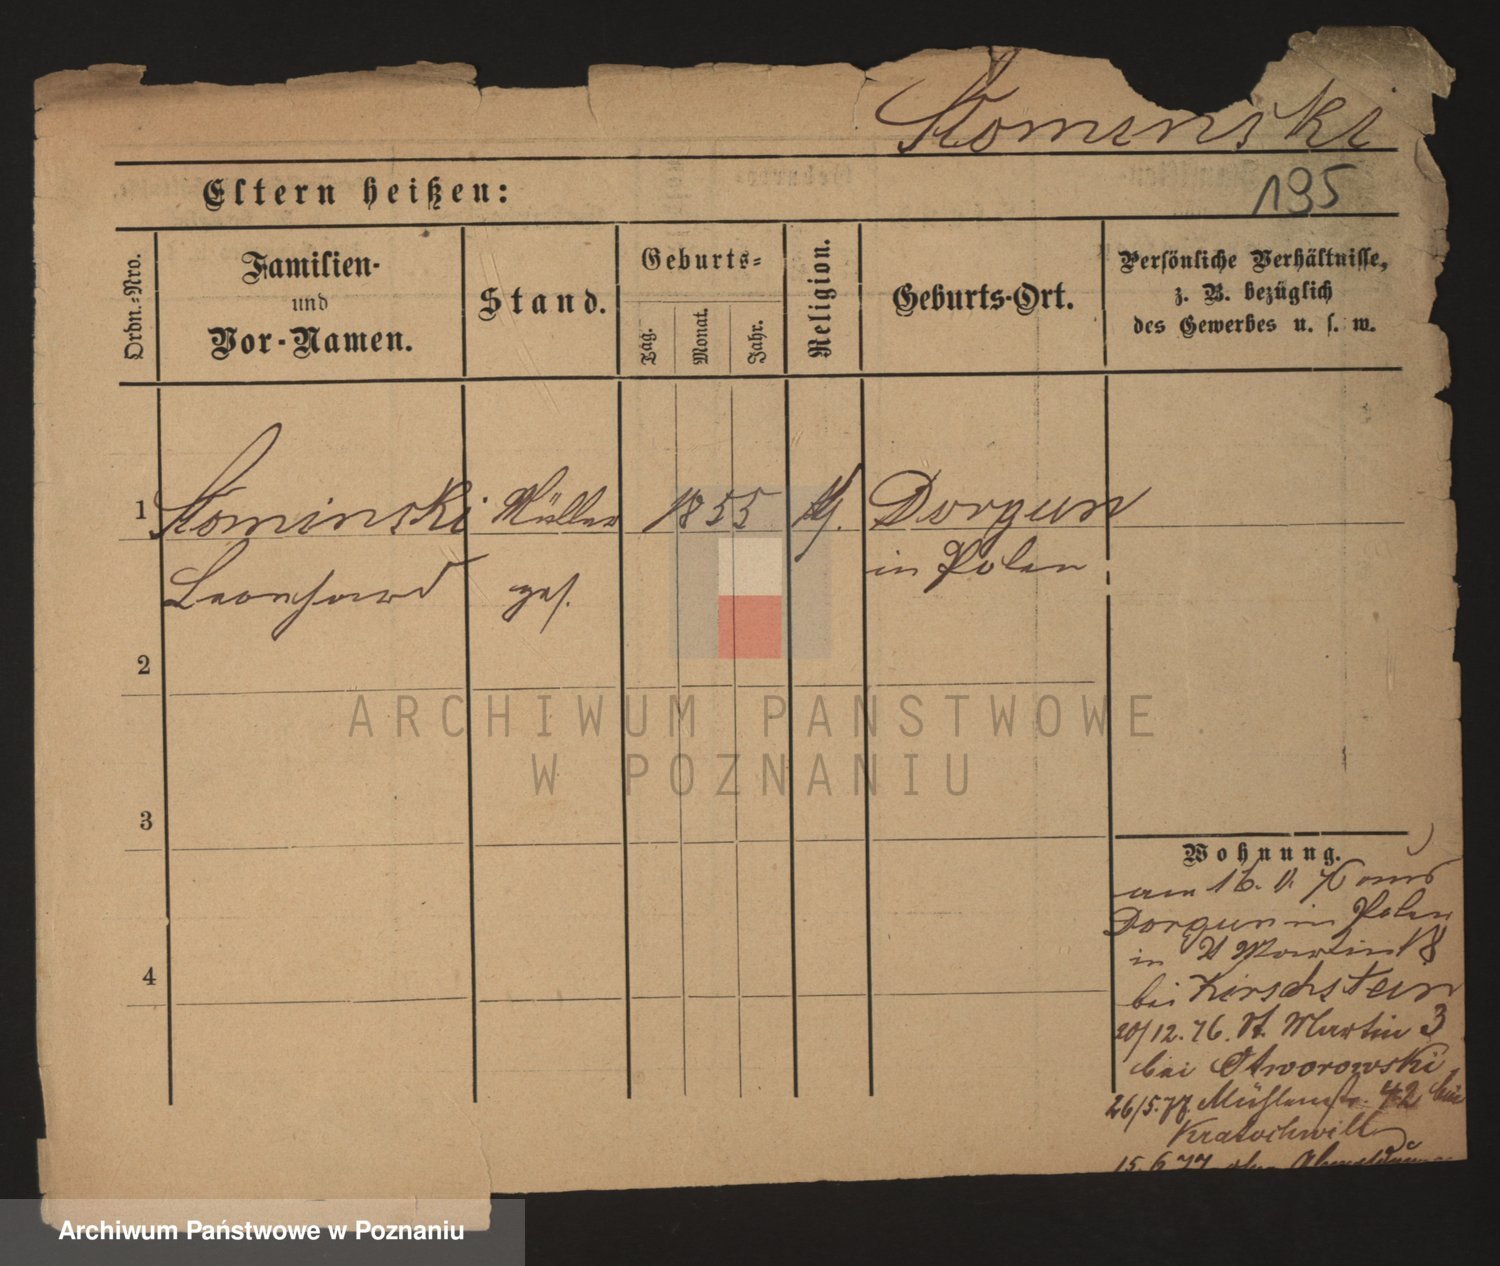 Słominski
195
Eltern heißen:
Ordn.-Nro.
Familien-
und
Vor-Namen.
Stand.
Geburts-
Tag.
Monat.
Jahr.
Religion.
Geburts-Ort.
Persönliche Verhältnisse,
z. B. bezüglich
des Gewerbes u. s. w.
1 Słominski Müller 1855 Dorgun
Leonhard ges. in Polen
2
3
4
Wohnung.
am 16. aus
Dorgun in Polen
in St Martin 18
bei Kirschstein
20/12. 76. St. Martin 3
bei Otworowski
26/5. 77 Mühlenstr. 42 bei
Kratochwill
15.6.77 ohne Abmeldung
ARCHIWUM PAŃSTWOWE
W POZNANIU
Archiwum Państwowe w Poznaniu